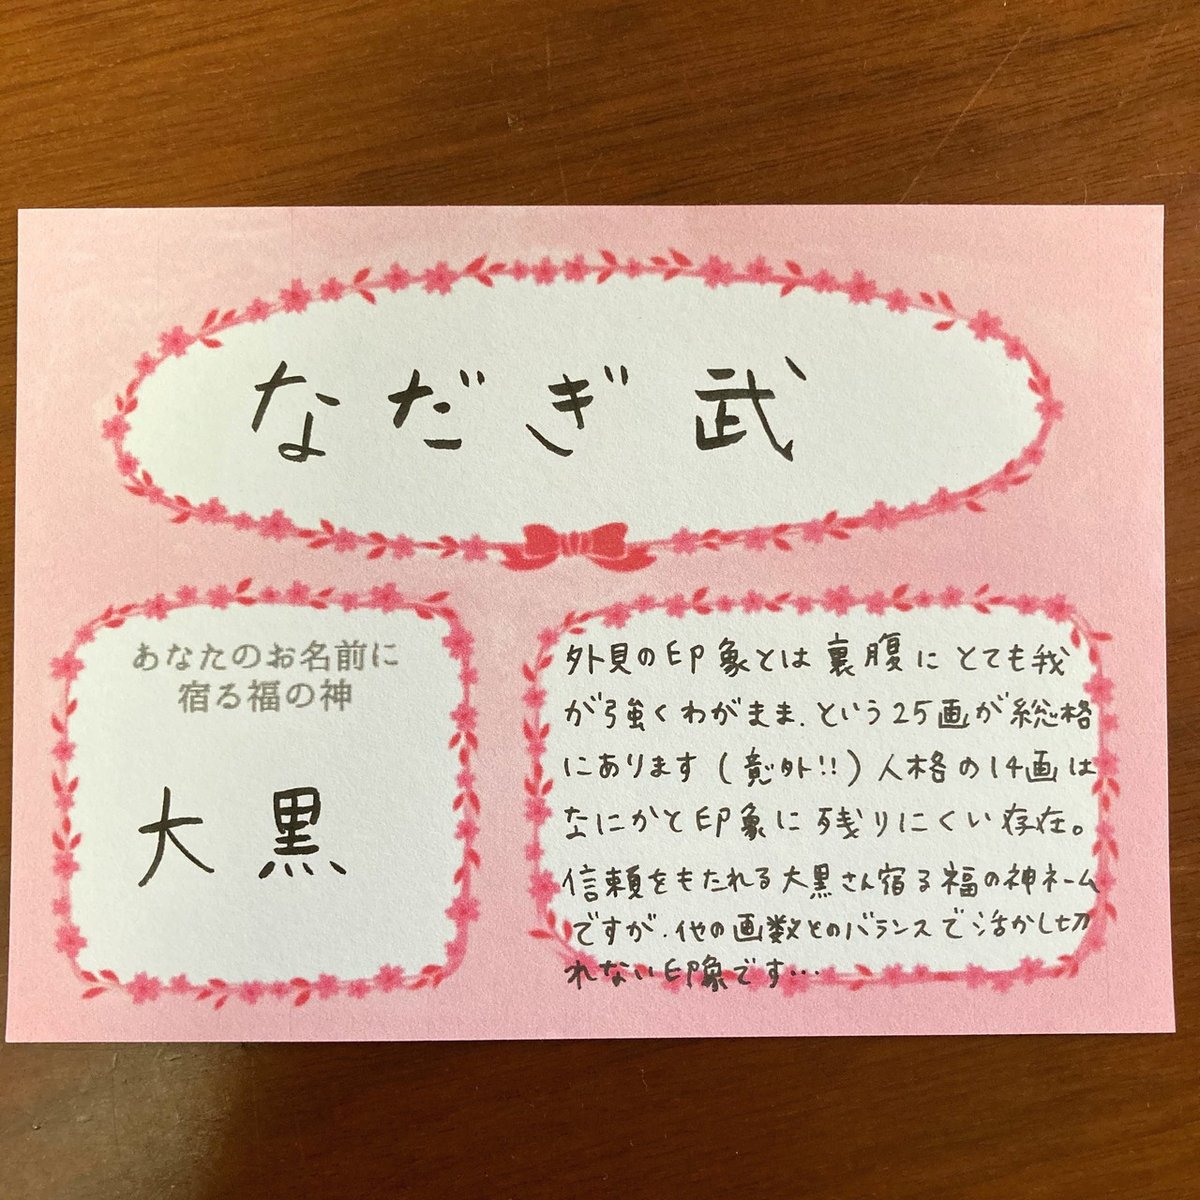 なだぎ武
あなたのお名前に
宿る福の神
大黒
外見の印象とは裏腹にとても我
が強くわがまま.という25画が総格
にあります(意外!!)人格の14画は
なにかと印象に残りにくい存在。
信頼をもたれる大黒さん宿る福の神ネーム
ですが.他の画数とのバランスで活かし切
れない印象です…